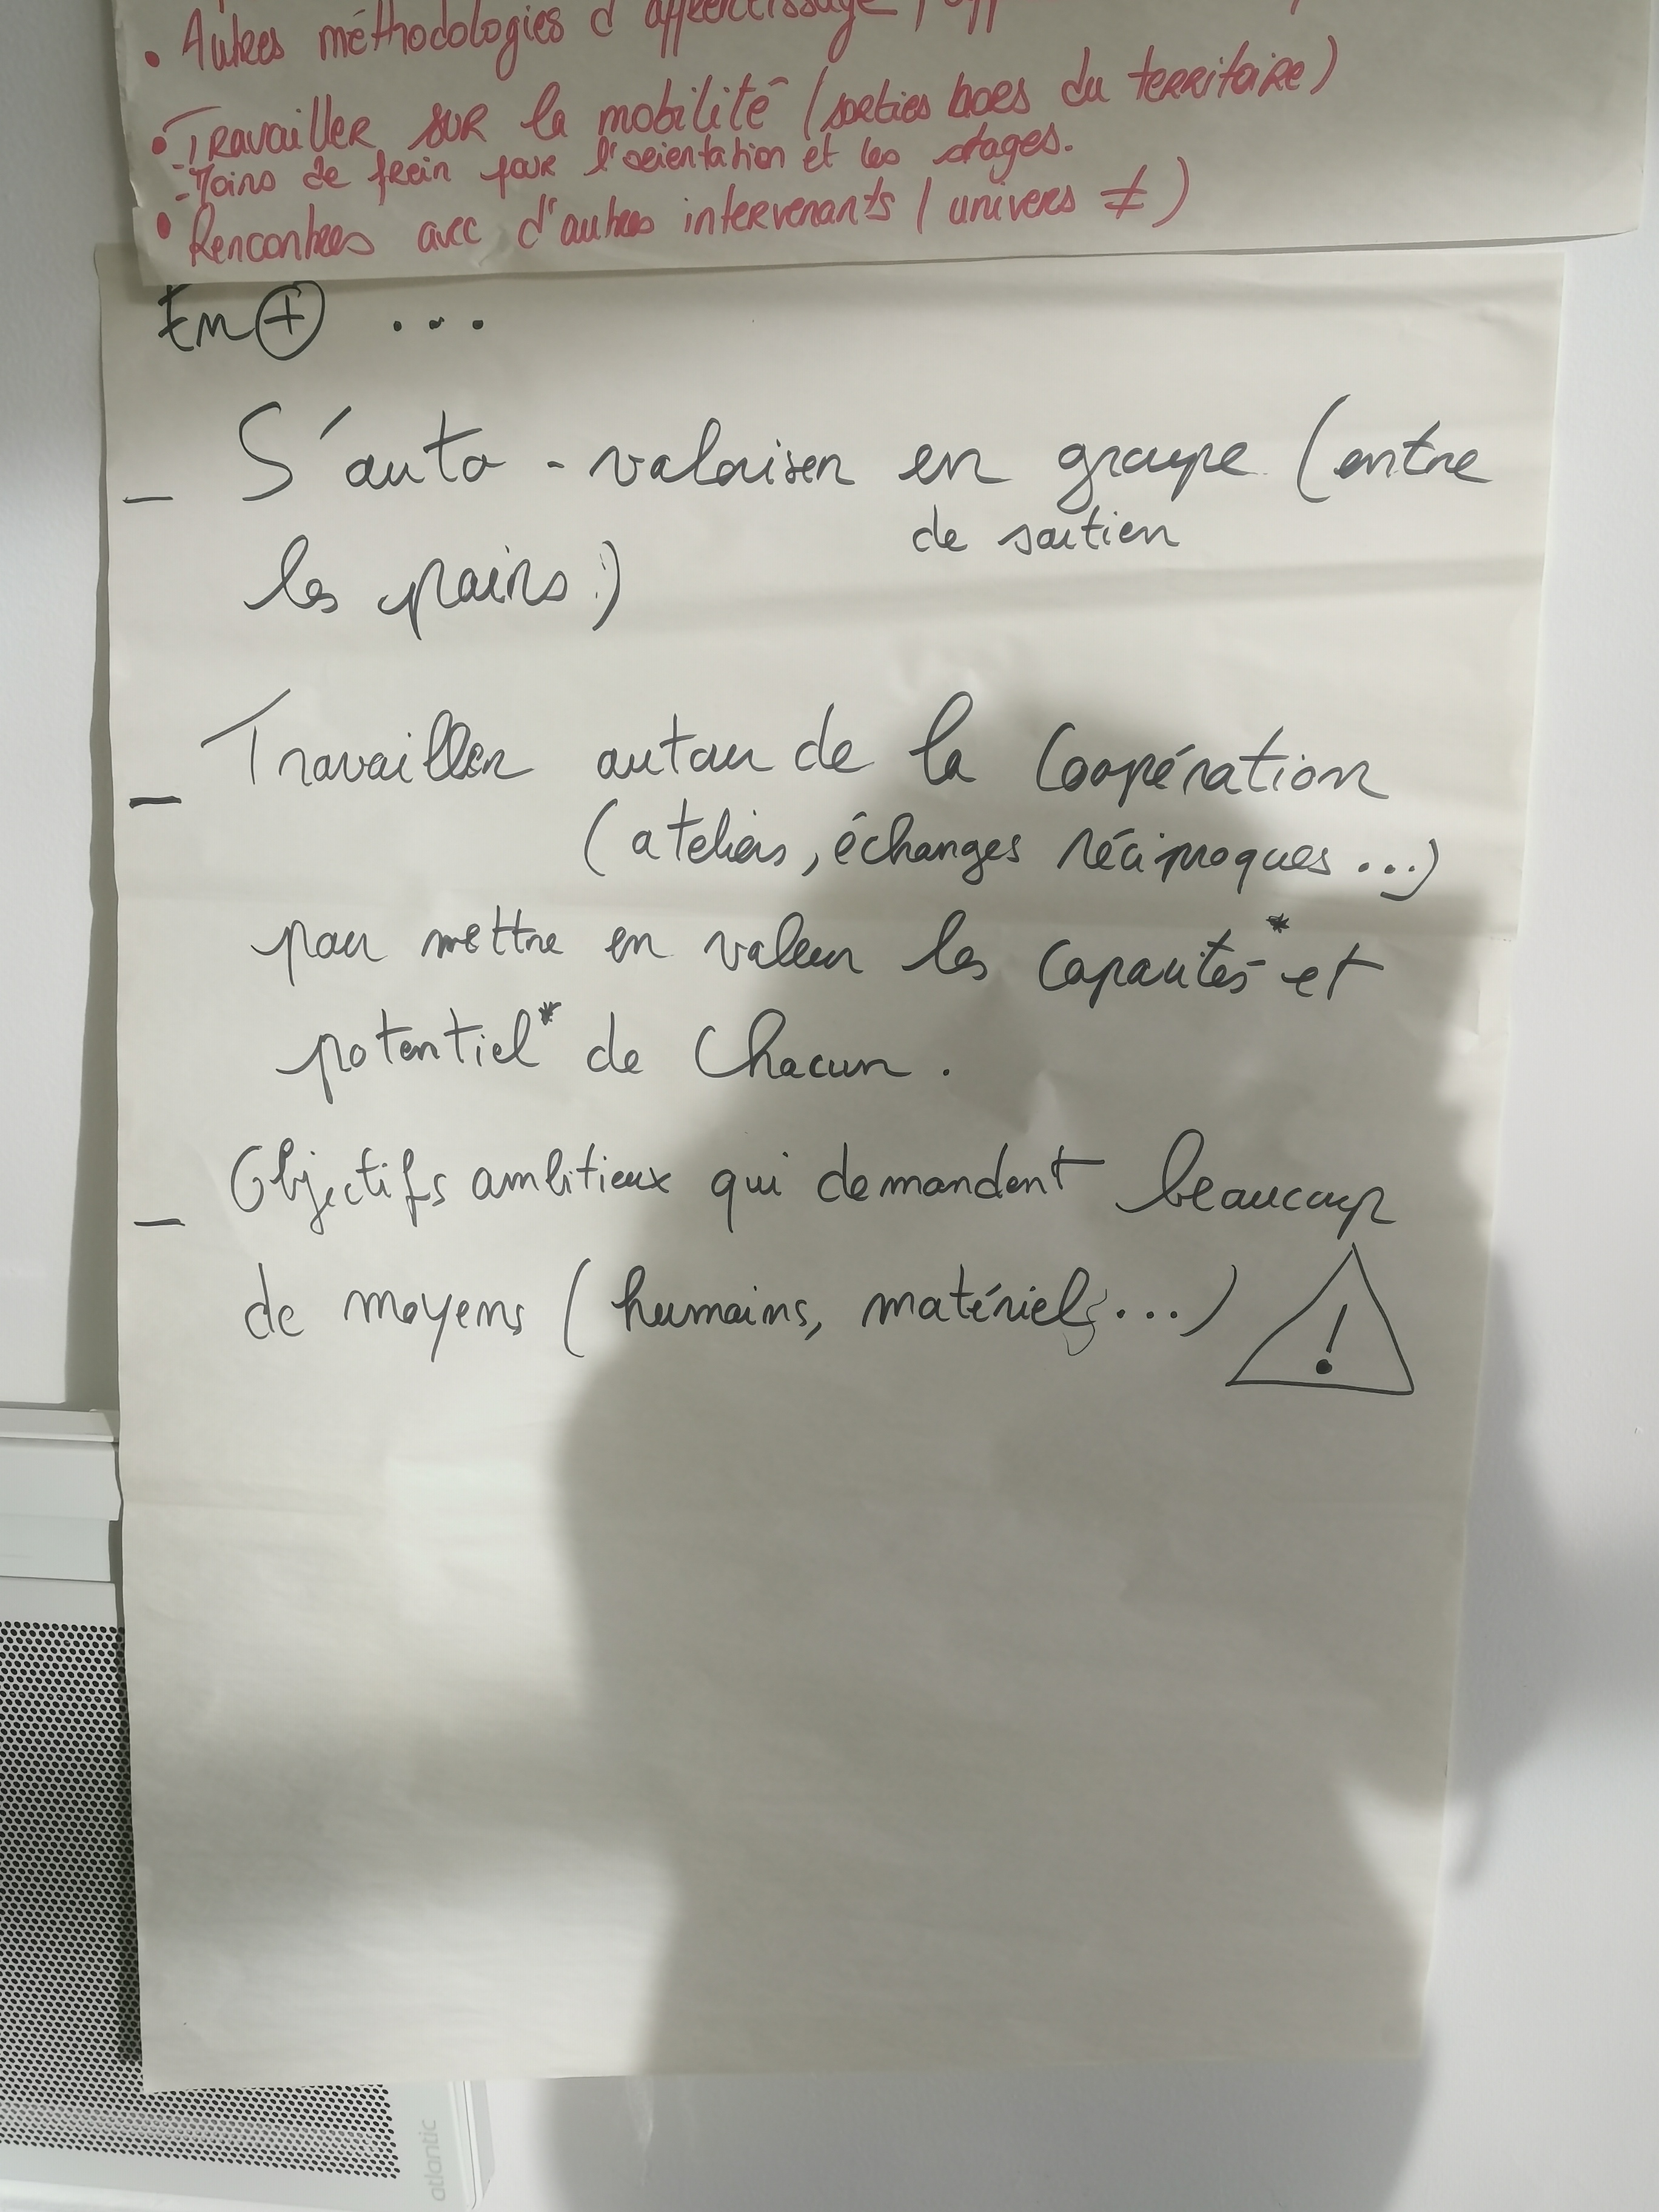 • Autres méthodologies d'apprentissage
• Travailler sur la mobilité (sorties hors du territoire)
= Moins de frein pour l'orientation et les stages.
• Rencontres avec d'autres intervenants (univers ≠)
En ⊕ ...
_ S'auto-valoriser en groupe (entre
de soutien
les pairs.)
_ Travailler autour de la Coopération
(ateliers, échanges réciproques...)
pour mettre en valeur les capacités* et
potentiel* de Chacun.
_ Objectifs ambitieux qui demandent beaucoup
de moyens (humains, matériels...) !
atlantic